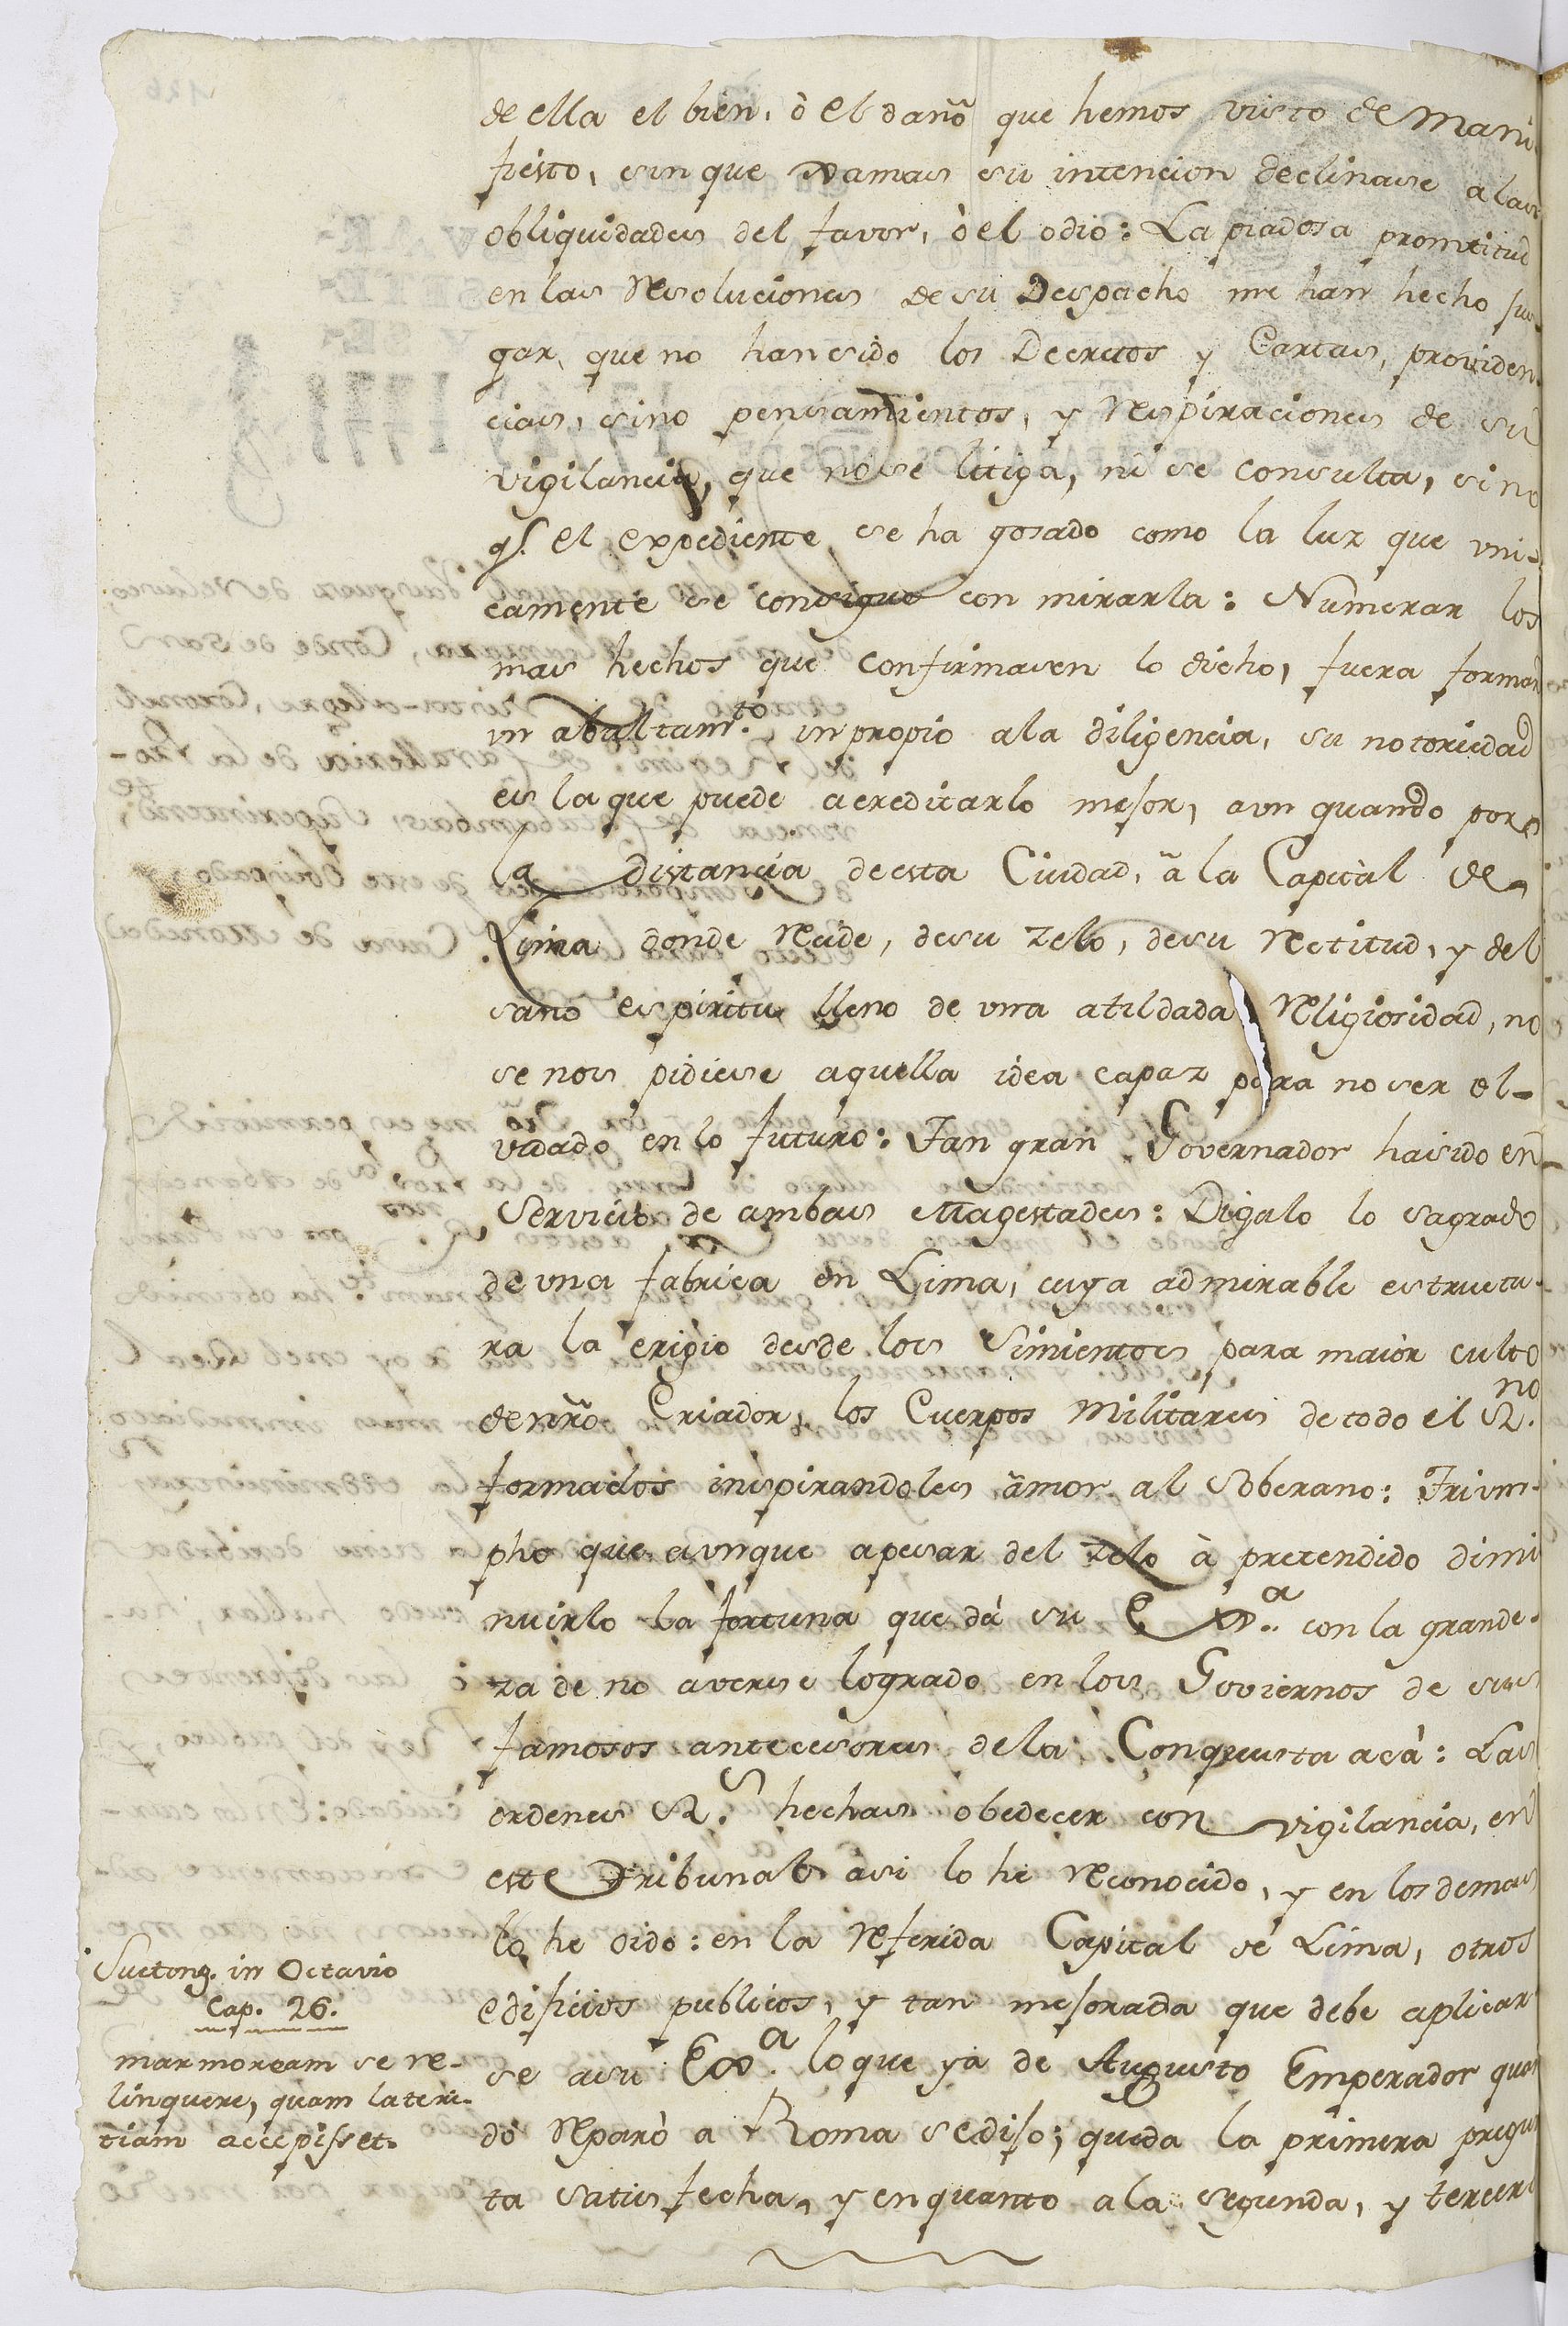 de ella el bien, ò el daño que hemos visto de Mani
fiesto, sin que Xamas su intencion declinase alas
obliquidades del favor, ò el odio: La piadosa promtitud
en las Resoluciones de su Despacho me han hecho jus-
gar, que no han sido los Decretos y Cartas, providen-
cias, sino pensamientos, y Respiraciones de su
vigilancia, que no se litiga, ni se consulta, sino
q.e el expediente se ha gosado como la luz que vni-
camente se consigue con mirarla: Numerar los
mas hechos que confirmasen lo dicho, fuera formar
vn abultam.to inpropio ala diligencia, su notoriedad
es la que puede acreditarlo mejor, aun quando por
la distancia de esta Ciudad, ã la Capital de
Lima donde Recide, de su zelo, de su Rectitud, y del
sano espiritu lleno de vna atildada Religiosidad, no
se nos pidiese aquella idea capaz para no ser ol-
vidado en lo futuro: Tan gran Governador ha sido en
Servicio de ambas Magestades: Digalo lo sagrado
de vna fabrica en Lima, cuya admirable estructu-
ra la erigio desde los Simientos para maior culto
de nr̃o Criador, los Cuerpos Militares de todo el R.no
formados inspirandoles ãmor al Soberano: Trium-
pho que aunque apesar del zelo à pretendido dimi
nuirlo la fortuna que dá su E X.a con la grande-
za de no averse logrado en los Goviernos de sus
famosos antecesores de la Conquista acà: Las
ordenes R.s hechas obedecer con vigilancia, en
este Tribunal asi lo he reconocido, y en los demas
lo he oido: en la Referida Capital de Lima, otros
edificios publicos, y tan mejorada que debe aplicar
se asu Exx.a lo que ya de Augusto Emperador quan
do Reparò a Roma se dijo; queda la primera pregun
ta satisfecha, y en quanto ala segunda, y tercera
Sueton. in Octavio
Cap. 26.
marmoream se re-
linquere, quam lateri-
tiam accepisset.